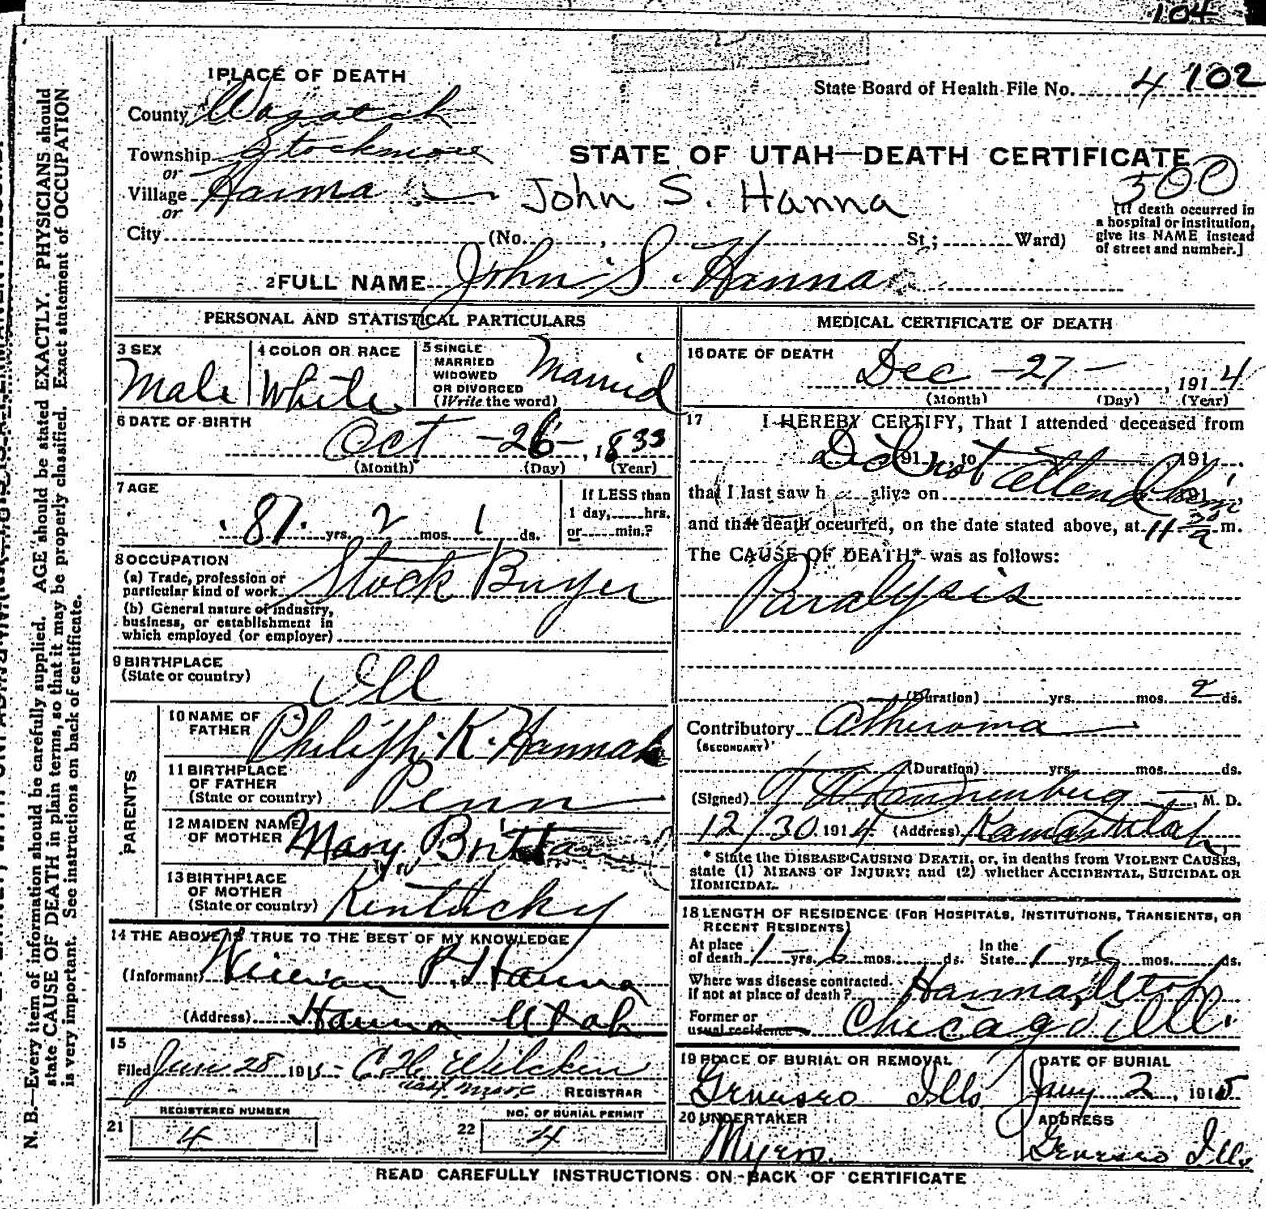 104
1 PLACE OF DEATH
State Board of Health File No. 4 102
County Wasatch
Township Stockmore
or
Village Hanna
or
STATE OF UTAH—DEATH CERTIFICATE
500
John S. Hanna
City (No. , St.; Ward)
[If death occurred in
a hospital or institution,
give its NAME instead
of street and number.]
2 FULL NAME John S. Hanna
PERSONAL AND STATISTICAL PARTICULARS
3 SEX
Male
4 COLOR OR RACE
White
5 SINGLE
MARRIED
WIDOWED
OR DIVORCED
(Write the word)
Married
6 DATE OF BIRTH
Oct - 26 - , 1833
(Month) (Day) (Year)
7 AGE
81 yrs. 2 mos. 1 ds.
If LESS than
1 day, hrs.
or min.?
8 OCCUPATION
(a) Trade, profession or
particular kind of work Stock Buyer
(b) General nature of industry,
business, or establishment in
which employed (or employer)
9 BIRTHPLACE
(State or country) Ill
PARENTS
10 NAME OF
FATHER Philiph K. Hannah
11 BIRTHPLACE
OF FATHER
(State or country) Penn
12 MAIDEN NAME
OF MOTHER Mary Brittan
13 BIRTHPLACE
OF MOTHER
(State or country) Kentucky
14 THE ABOVE IS TRUE TO THE BEST OF MY KNOWLEDGE
(Informant) P. Hanna
(Address) Hanna Utah
15
Filed 28 1915 - C. H. Wilcken
REGISTRAR
REGISTERED NUMBER
21 4
NO. OF BURIAL PERMIT
22 4
MEDICAL CERTIFICATE OF DEATH
16 DATE OF DEATH
Dec - 27 - , 1914
(Month) (Day) (Year)
17 I HEREBY CERTIFY, That I attended deceased from
191 , to 191
Did not attend him
that I last saw h alive on 191
and that death occurred, on the date stated above, at 11 30 a m.
The CAUSE OF DEATH* was as follows:
Paralysis
(Duration) yrs. mos. 2 ds.
Contributory Atheroma
(SECONDARY)
(Duration) yrs. mos. ds.
(Signed) , M. D.
12/30 1914 (Address) Kamas Utah
* State the DISEASE CAUSING DEATH, or, in deaths from VIOLENT CAUSES,
state (1) MEANS OF INJURY; and (2) whether ACCIDENTAL, SUICIDAL OR
HOMICIDAL.
18 LENGTH OF RESIDENCE (FOR HOSPITALS, INSTITUTIONS, TRANSIENTS, OR
RECENT RESIDENTS)
At place
of death 1 yrs. 6 mos. ds.
In the
State 1 yrs. 6 mos. ds.
Where was disease contracted,
if not at place of death? Hanna, Utah
Former or
usual residence Chicago Ill.
19 PLACE OF BURIAL OR REMOVAL
Geneseo Ills
DATE OF BURIAL
Jany 2 , 1915
20 UNDERTAKER
Myers.
ADDRESS
Geneseo Ills
READ CAREFULLY INSTRUCTIONS ON BACK OF CERTIFICATE
N. B.—Every item of information should be carefully supplied. AGE should be stated EXACTLY. PHYSICIANS should
state CAUSE OF DEATH in plain terms, so that it may be properly classified. Exact statement of OCCUPATION
is very important. See instructions on back of certificate.